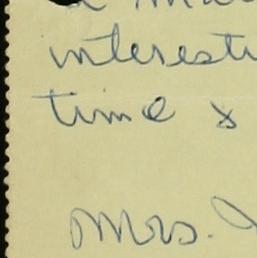 a
interesti
time &
Mrs.